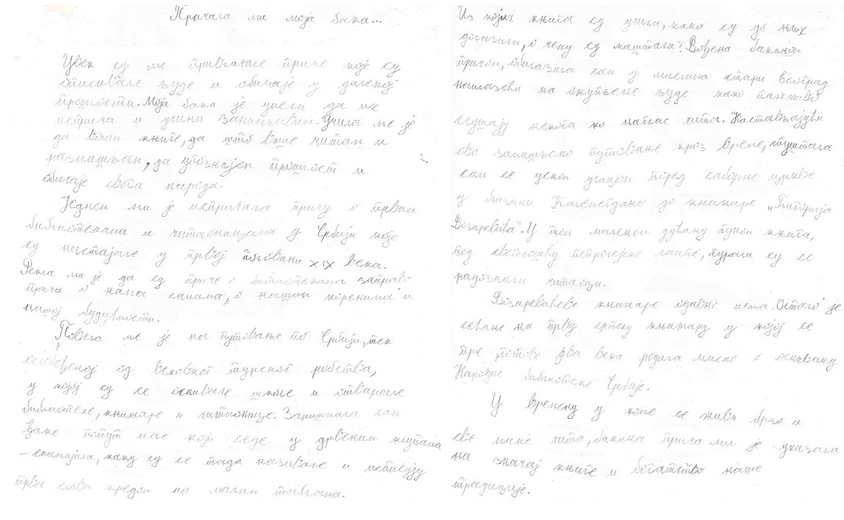 Причала ми моја бака...
Увек су ме привлачиле приче које су
описивале људе и обичаје у далекој
прошлости. Моја бака је умела да их
исприча и учини занимљивим. Учила ме је
да волим књиге, да што више читам и
размишљам, да упознајем прошлост и
обичаје свога народа.
Једном ми је испричала причу о првим
библиотекама и читаоницама у Србији које
су настајале у првој половини XIX века.
Рекла ми је да су приче о библиотекама заправо
прича о нама самима, о нашим коренима и
нашој будућности.
Повела ме је на путовање по Србији, тек
ослобођеној од вековног турског ропства,
у којој су се оснивале школе и отварале
библиотеке, књижаре и читаонице. Замишљала сам
ђаке попут мене који седе у дрвеним клупама
- скамијама, како су се тада називале и исписују
прва слова кредом на малим таблама.
Из којих књига су учили, како су до њих
долазили, о чему су маштали? Вођена бакином
причом, обилазила сам у мислима стари Београд
наилазећи на окупљене људе како пажљиво
слушају некога ко наглас чита. Настављајући
ово замишљено путовање кроз време, шуштала
сам се уском улицом поред саборне цркве
у близини Калемегдана до књижаре „Глигорија
Возаровића“. У том маленом дућану пуном књига,
под светлошћу петролејске лампе, турали су се
радознали читаоци.
Возаровићеве књижаре одавно нема. Остало је
сећање на прву српску књижару у којој се
пре готово два века родила мисао о оснивању
Народне библиотеке Србије.
У времену у коме се живи брзо и
све мање чита, бакина прича ми је указала
на значај књиге и богатство наше
традиције.